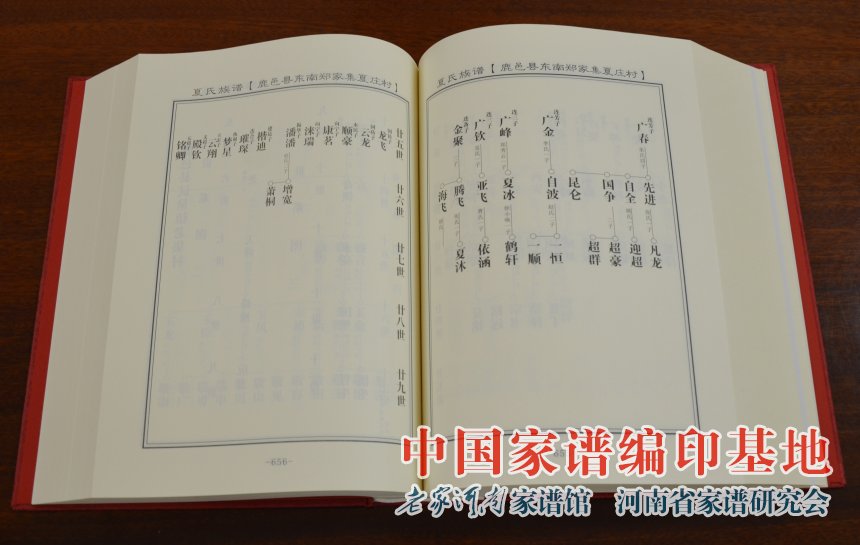 夏氏族谱【鹿邑县东南郑家集夏庄村】
廿五世 廿六世 廿七世 廿八世 廿九世
龙飞
云龙
顺豪
康茗
涞瑞
潘潘
增宽
萧桐
楷迪
璀琛
梦星
云翔
殿钦
铭卿
-656-
夏氏族谱【鹿邑县东南郑家集夏庄村】
连芳子
广春
先进
凡龙
自全
迎超
国争
超豪
超群
昆仑
广金
自波
一恒
一顺
广峰
夏冰
鹤轩
广钦
亚飞
依涵
金聚
腾飞
夏沐
海飞
中国家谱编印基地
老家河南家谱馆 河南省家谱研究会